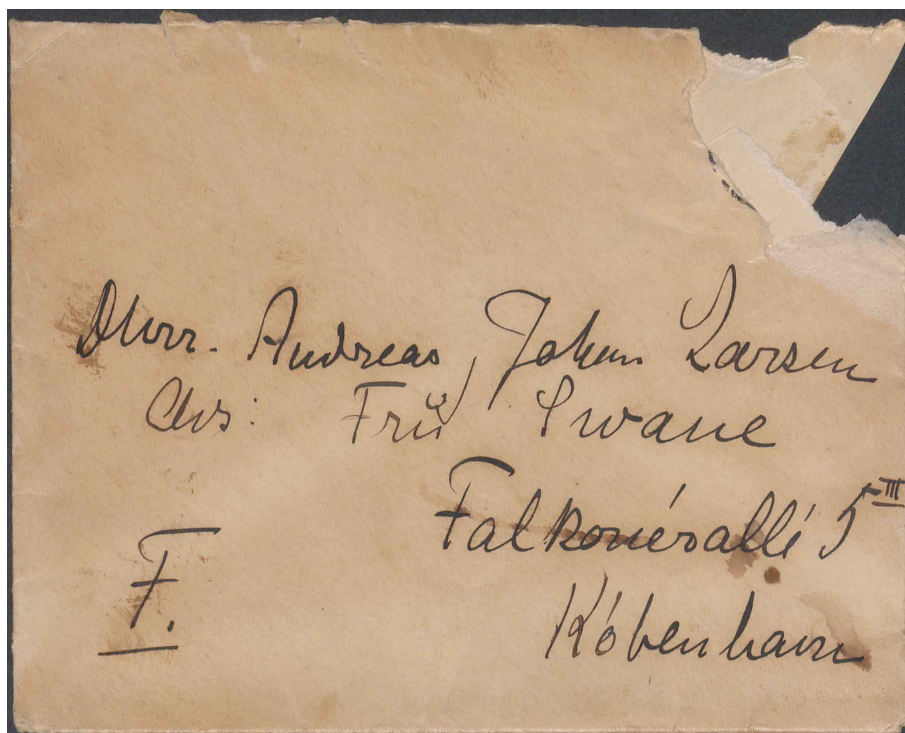 Dhrr. Andreas, Johan Larsen
Adrs: Frü Swane
Falkonérallé 5 III
F.
Kóbenhavn